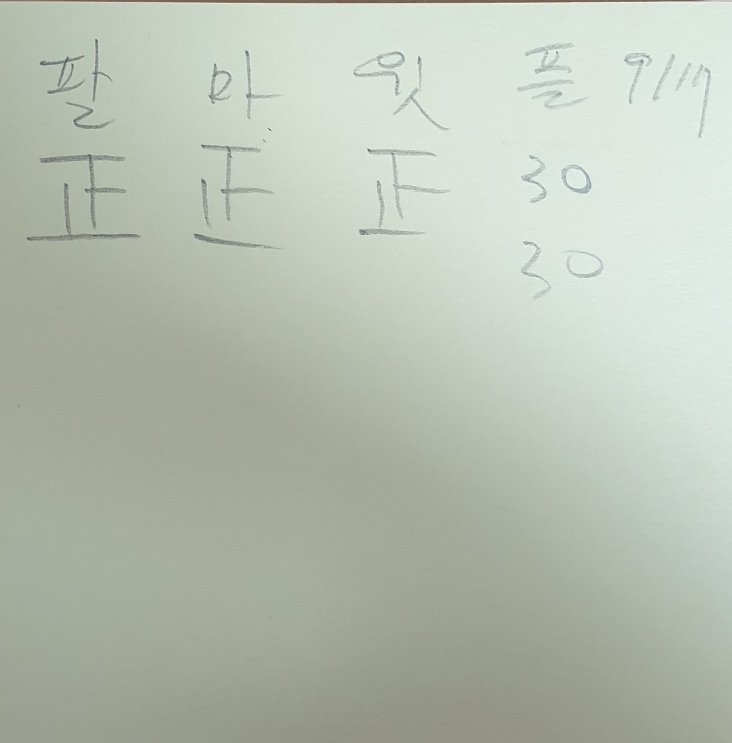 팔 마 윗 플 9/17
正 正 正 30
30